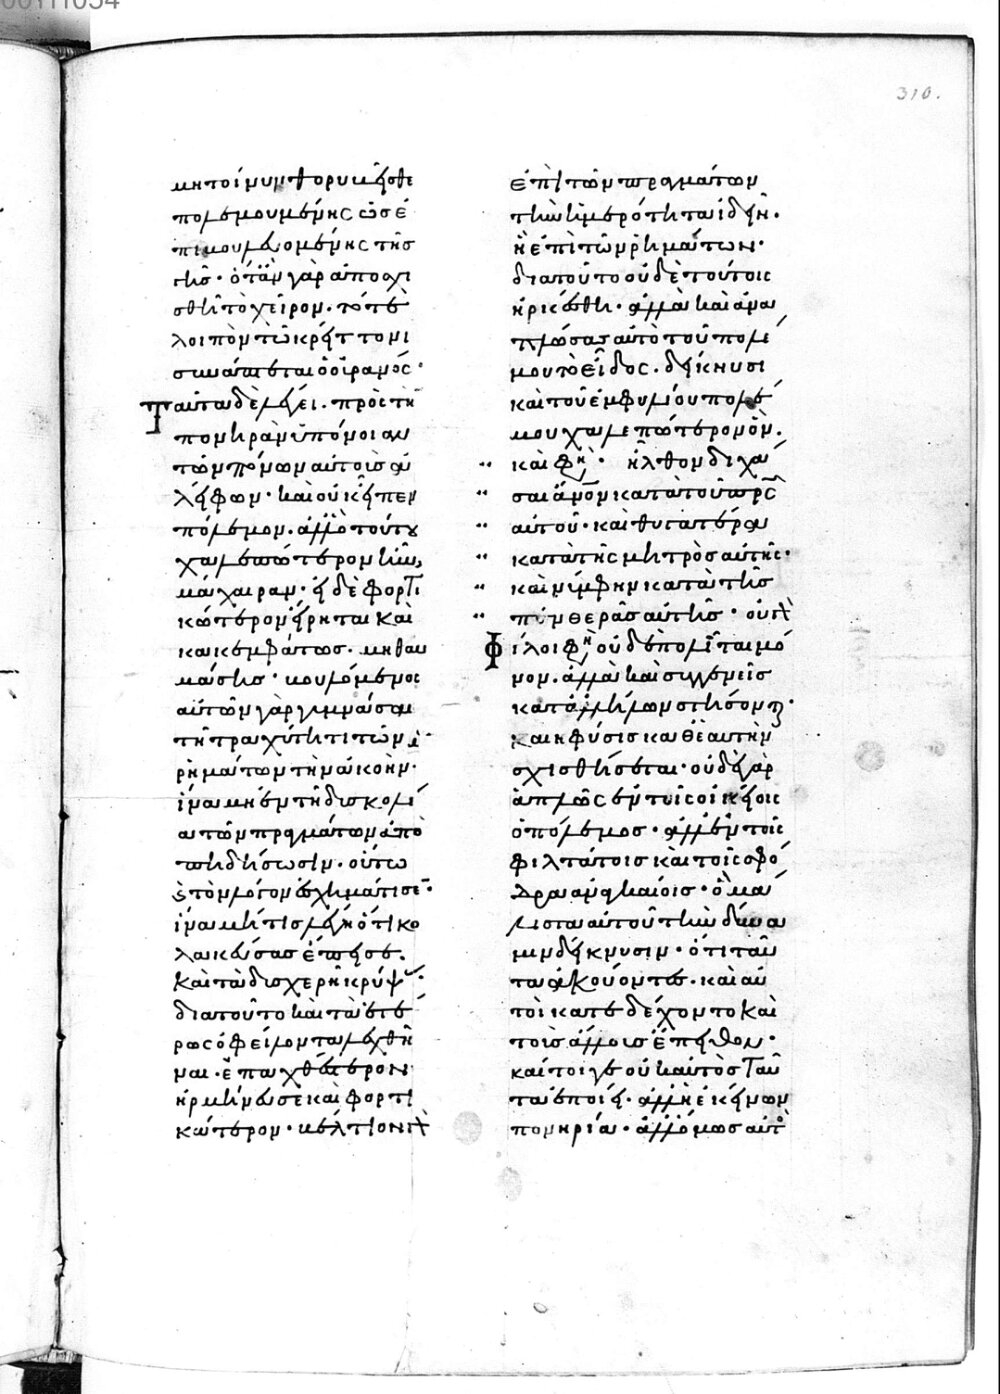 μὴ τοίνυν θορυβεῖσθε
πολεμουμένης ὡς ἐ
πιβουλευομένης τῆς
γῆς · ὅταν γὰρ ἀποσχι
σθῆ τὸ χεῖρον · τότε
λοιπὸν τῶ κρείττονι
συνάπτεται ὁ οὐρανός ·
Ταῦτα δὲ λέγει · πρὸς τὴν
πονηρὰν ὑπόνοιαν
τῶν πόνων αὐτοὺς ἀ
λείφων · καὶ οὐκ εἶπεν
πόλεμον · ἀλλ' ὃ τούτου
χαλεπώτερον ἦν,
μάχαιραν · εἰ δὲ φορτι
κώτερον εἴρηται καὶ
κακεμφάτως · μὴ θαυ
μάσης · βουλόμενος
αὐτῶν γὰρ γυμνάσαι
τῆ τραχύτητι τῶν
ῥημάτων τὴν ἀκοὴν ·
ἵνα μὴ ἐν τῆ δυσκολί
α τῶν πραγμάτων ἀπο
πηδήσωσιν · οὕτω
ϗ τὸν λόγον ἐσχημάτισεν ·
ἵνα μή τις λέγη ὅτι κο
λακεύσας ἔπεισε ·
καὶ τὰ δυσχερῆ κρύψας ·
διὰ τοῦτο καὶ τὰ ἑτέ
ρως ὀφείλοντα λεχθῆ
ναι · ἐπαχθέστερον
ἡρμήνευσε καὶ φορτι
κώτερον · βέλτιον γὰρ
ἐπὶ τῶν πραγμάτων
τὴν ἡμερότητα ἰδεῖν ·
ἢ ἐπὶ τῶν ῥημάτων ·
διὰ τοῦτο οὐδὲ τούτοις
ἠρκέσθη · ἀλλὰ καὶ ἀνα
πλώσας αὐτὸ τοῦ πολέ
μου τὸ εἶδος · δείκνυσι
καὶ τοῦ ἐμφυλίου πολέ
μου χαλεπώτερον ὄν ·
καὶ φη · ἦλθον διχά
σαι ἄνον κατὰ τοῦ πρς
αὐτοῦ · καὶ θυγατέρα
κατὰ τῆς μητρὸς αὐτῆς ·
καὶ νύμφην κατὰ τῆς
πενθερᾶς αὐτῆς · οὐ γὰρ
Φίλοι φη οὐδὲ πολῖται μό
νον · ἀλλὰ καὶ συγγενεῖς
κατ' ἀλλήλων στήσονται ·
καὶ ἡ φύσις καθ' ἑαυτὴν
σχισθήσεται · οὐδὲ γὰρ
ἁπλῶς ἐν τοῖς οἰκείοις
ὁ πόλεμος · ἀλλ' ἐν τοῖς
φιλτάτοις καὶ τοῖς σφό
δρα ἀναγκαίοις · ὃ μά
λιστα αὐτοῦ τὴν δύνα
μιν δείκνυσιν · ὅτι ταῦ
τα ἀκούοντες · καὶ αὐ
τοὶ κατεδέχοντο καὶ
τοὺς ἄλλους ἔπειθον ·
καίτοι γε οὐκ αὐτὸς ταῦ
τα ἐποίει · ἀλλ' ἡ ἐκείνων
πονηρία · ἀλλ' ὅμως αὐτὸς
310.